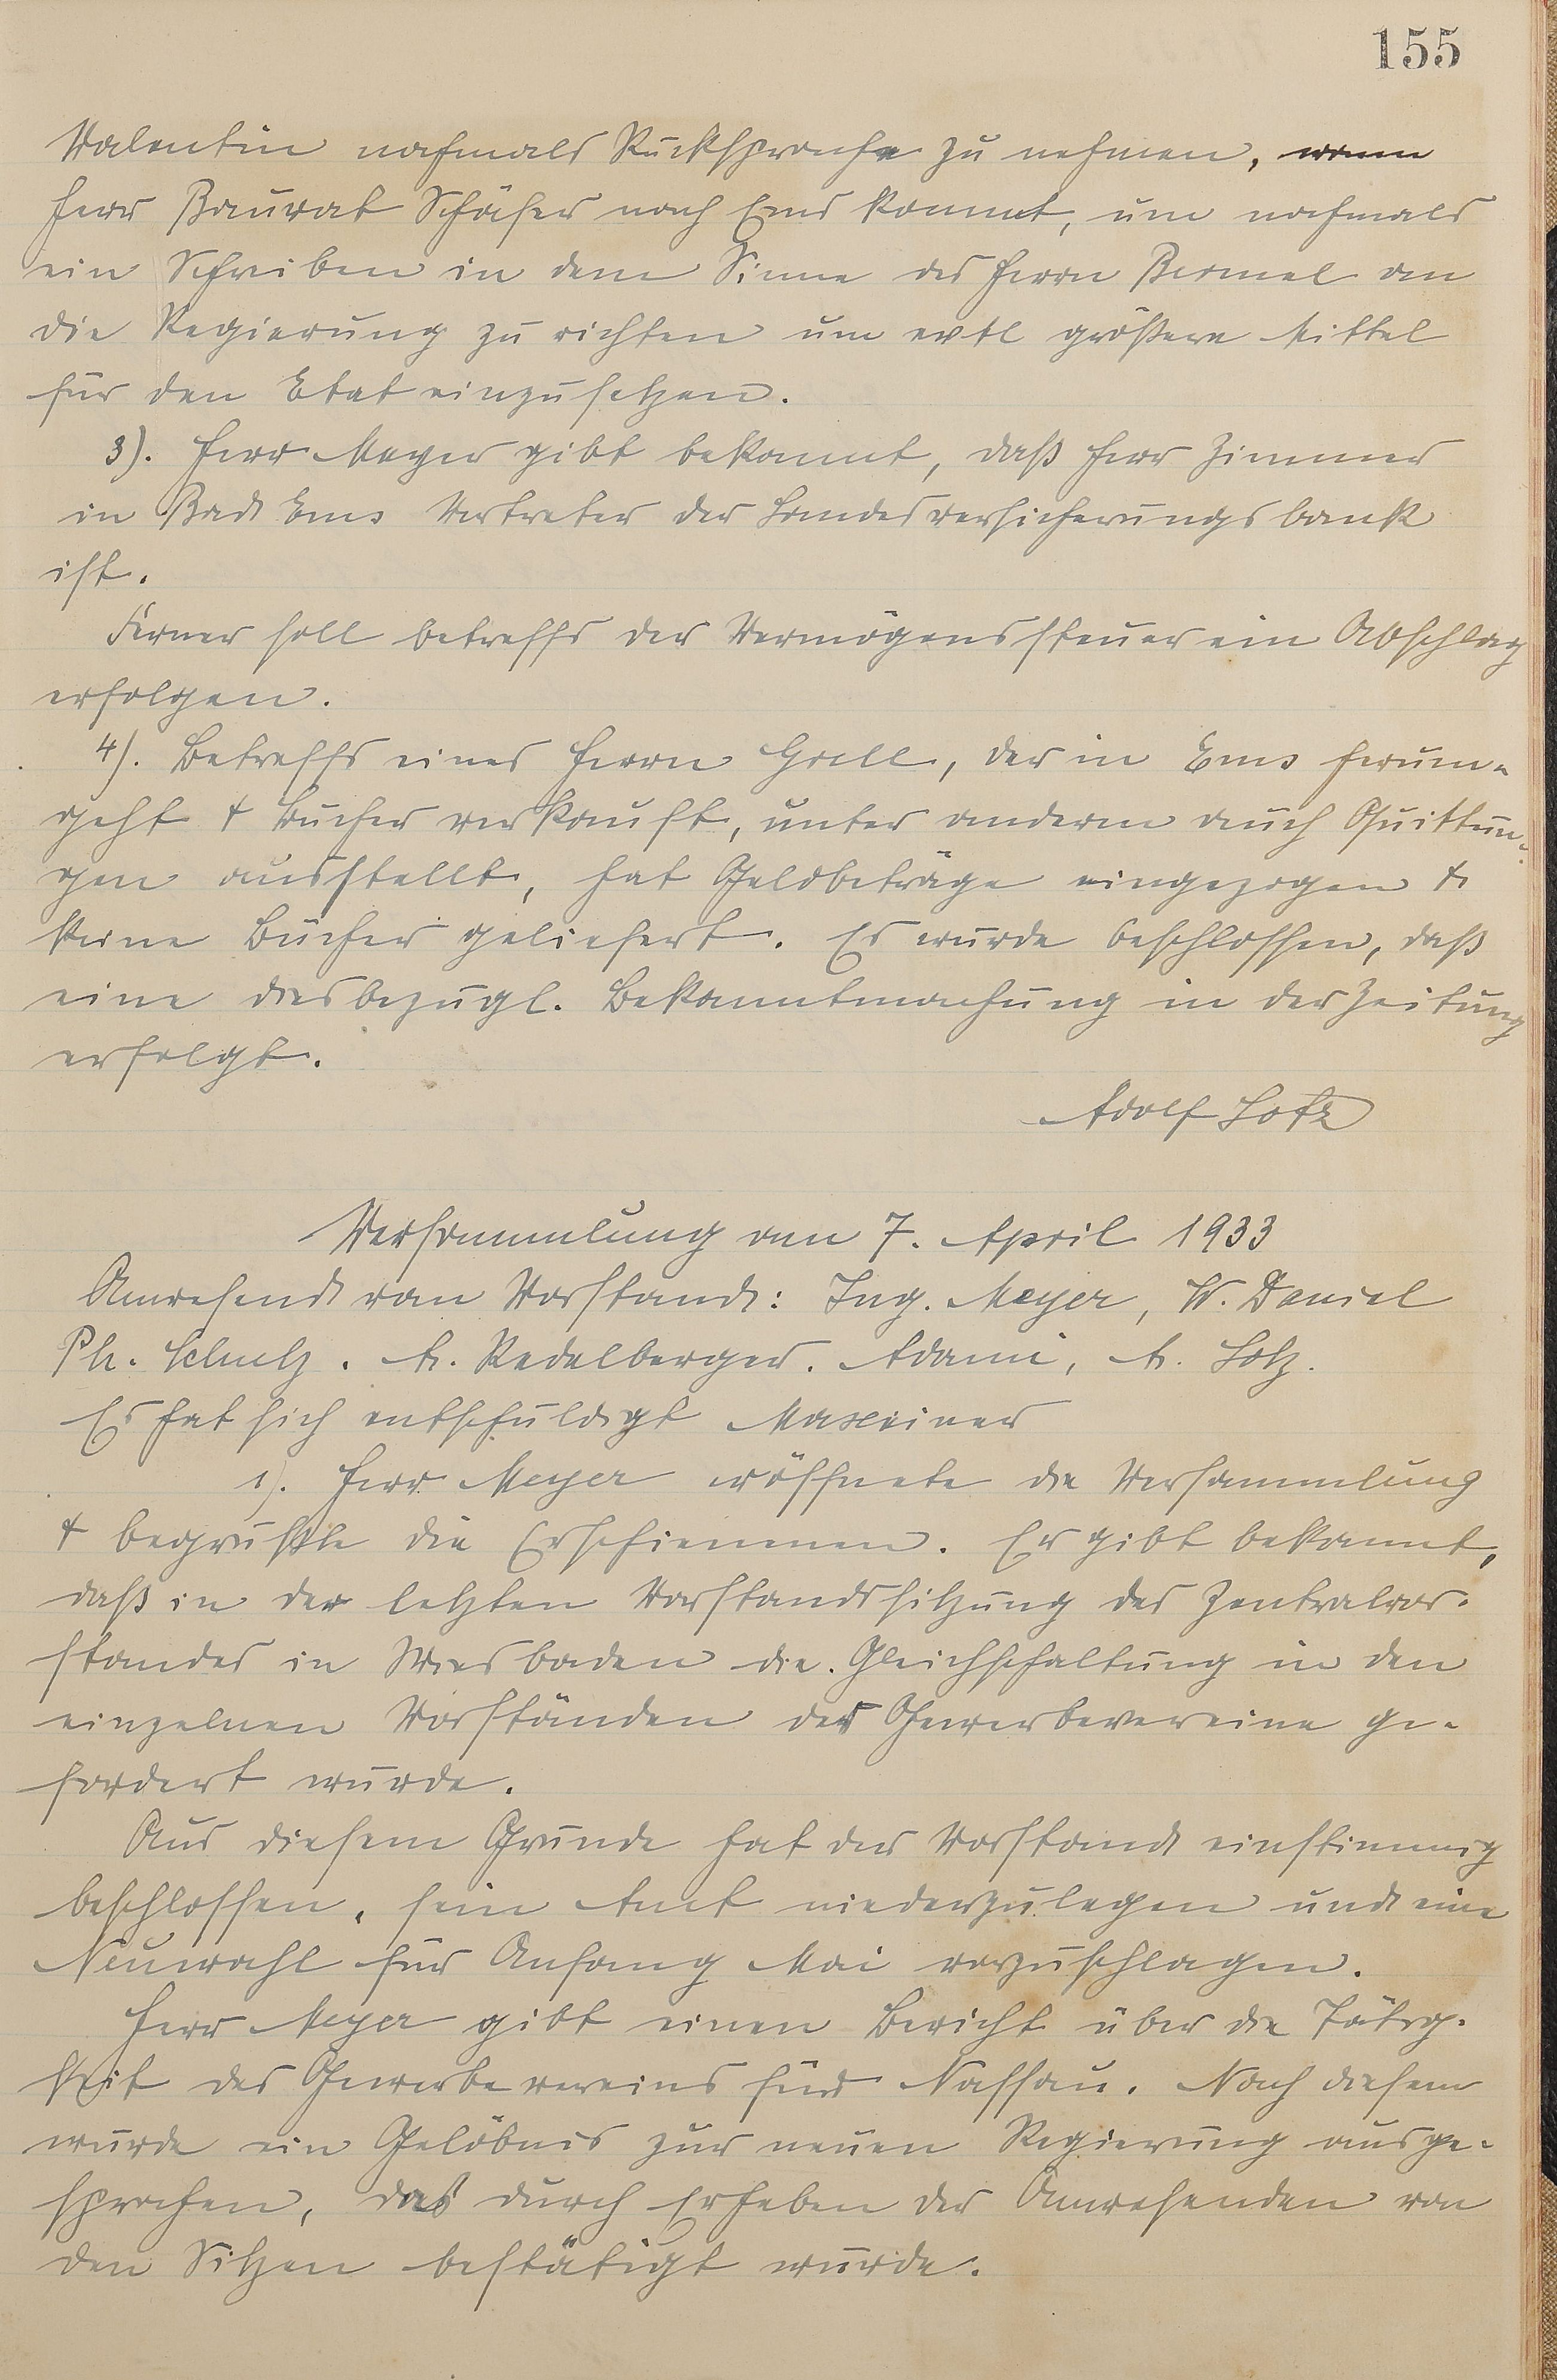 155
Valentin nochmals Rücksprache zu nehmen, wenn
Herr Baurat Schäfer nach Ems kommt, um nochmals
ein Schreiben in dem Sinne des Herrn Bermel an
die Regierung zu richten um evtl größere Mittel
für den Etat einzusetzen.
3). Herr Meyer gibt bekannt, daß Herr Zimmer
in Bad Ems Vertreter der Landesversicherungsbank
ist.
Ferner soll betreffs der Vermögenssteuer ein Abschlag
erfolgen.
4). Betreffs eines Herrn Grell, der in Ems herum-
geht & Bücher verkauft, unter anderem auch Quittun-
gen ausstellt, hat Geldbeträge eingezogen &
keine Bücher geliefert. Es wurde beschlossen, daß
eine diesbezügl. Bekanntmachung in der Zeitung
erfolgt.
Adolf Lotz
Versammlung am 7. April 1933
Anwesend vom Vorstand: Ing. Meyer, W. Daniel
Ph. Schulz. A. Redelberger. Adami, A. Lotz.
Es hat sich entschuldigt Maxeiner
1). Herr Meyer eröffnete die Versammlung
& begrüßte die Erschienenen. Er gibt bekannt,
daß in der letzten Vorstandssitzung des Zentralvor-
standes in Wiesbaden die Gleichschaltung in den
einzelnen Vorständen der Gewerbevereine ge-
fordert wurde.
Aus diesem Grunde hat der Vorstand einstimmig
beschlossen, sein Amt niederzulegen und eine
Neuwahl für Anfang Mai vorzuschlagen.
Herr Meyer gibt einen Bericht über die Tätig-
keit des Gewerbevereins für Nassau. Nach diesem
wurde ein Gelöbnis zur neuen Regierung ausge-
sprochen, das durch Erheben der Anwesenden von
den Sitzen bestätigt wurde.